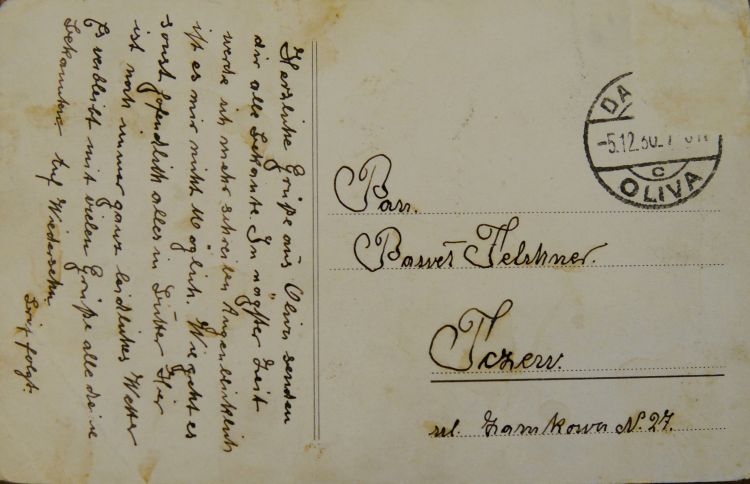 Herzliche Grüße aus Oliva senden
dir alle Bekante. In nägster Zeit
werde ich mehr schreiben Augenblicklich
ist es mir nicht Möglich. Wie geht es
sonst hofendlich alles in Butter Hier
ist noch immer ganz leidliches Wetter
Es verbleibt mit vielen Grüße alle deine
Bekannten Auf Wiedersehn
Brief folgt.
DA
-5.12.30.
c
OLIVA
Pan.
Paweł Telchner.
Tczew.
ul. Zamkowa N. 27.